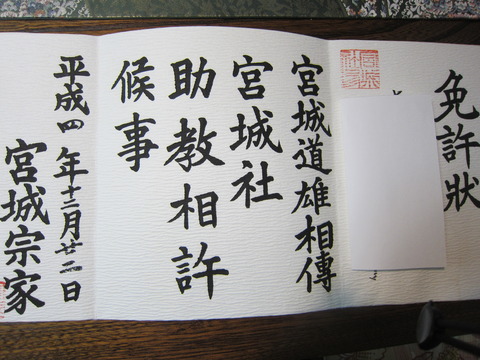 免許狀
宮城道雄相傳
宮城社
助教相許
候事
平成四年十二月廿二日
宮城宗家